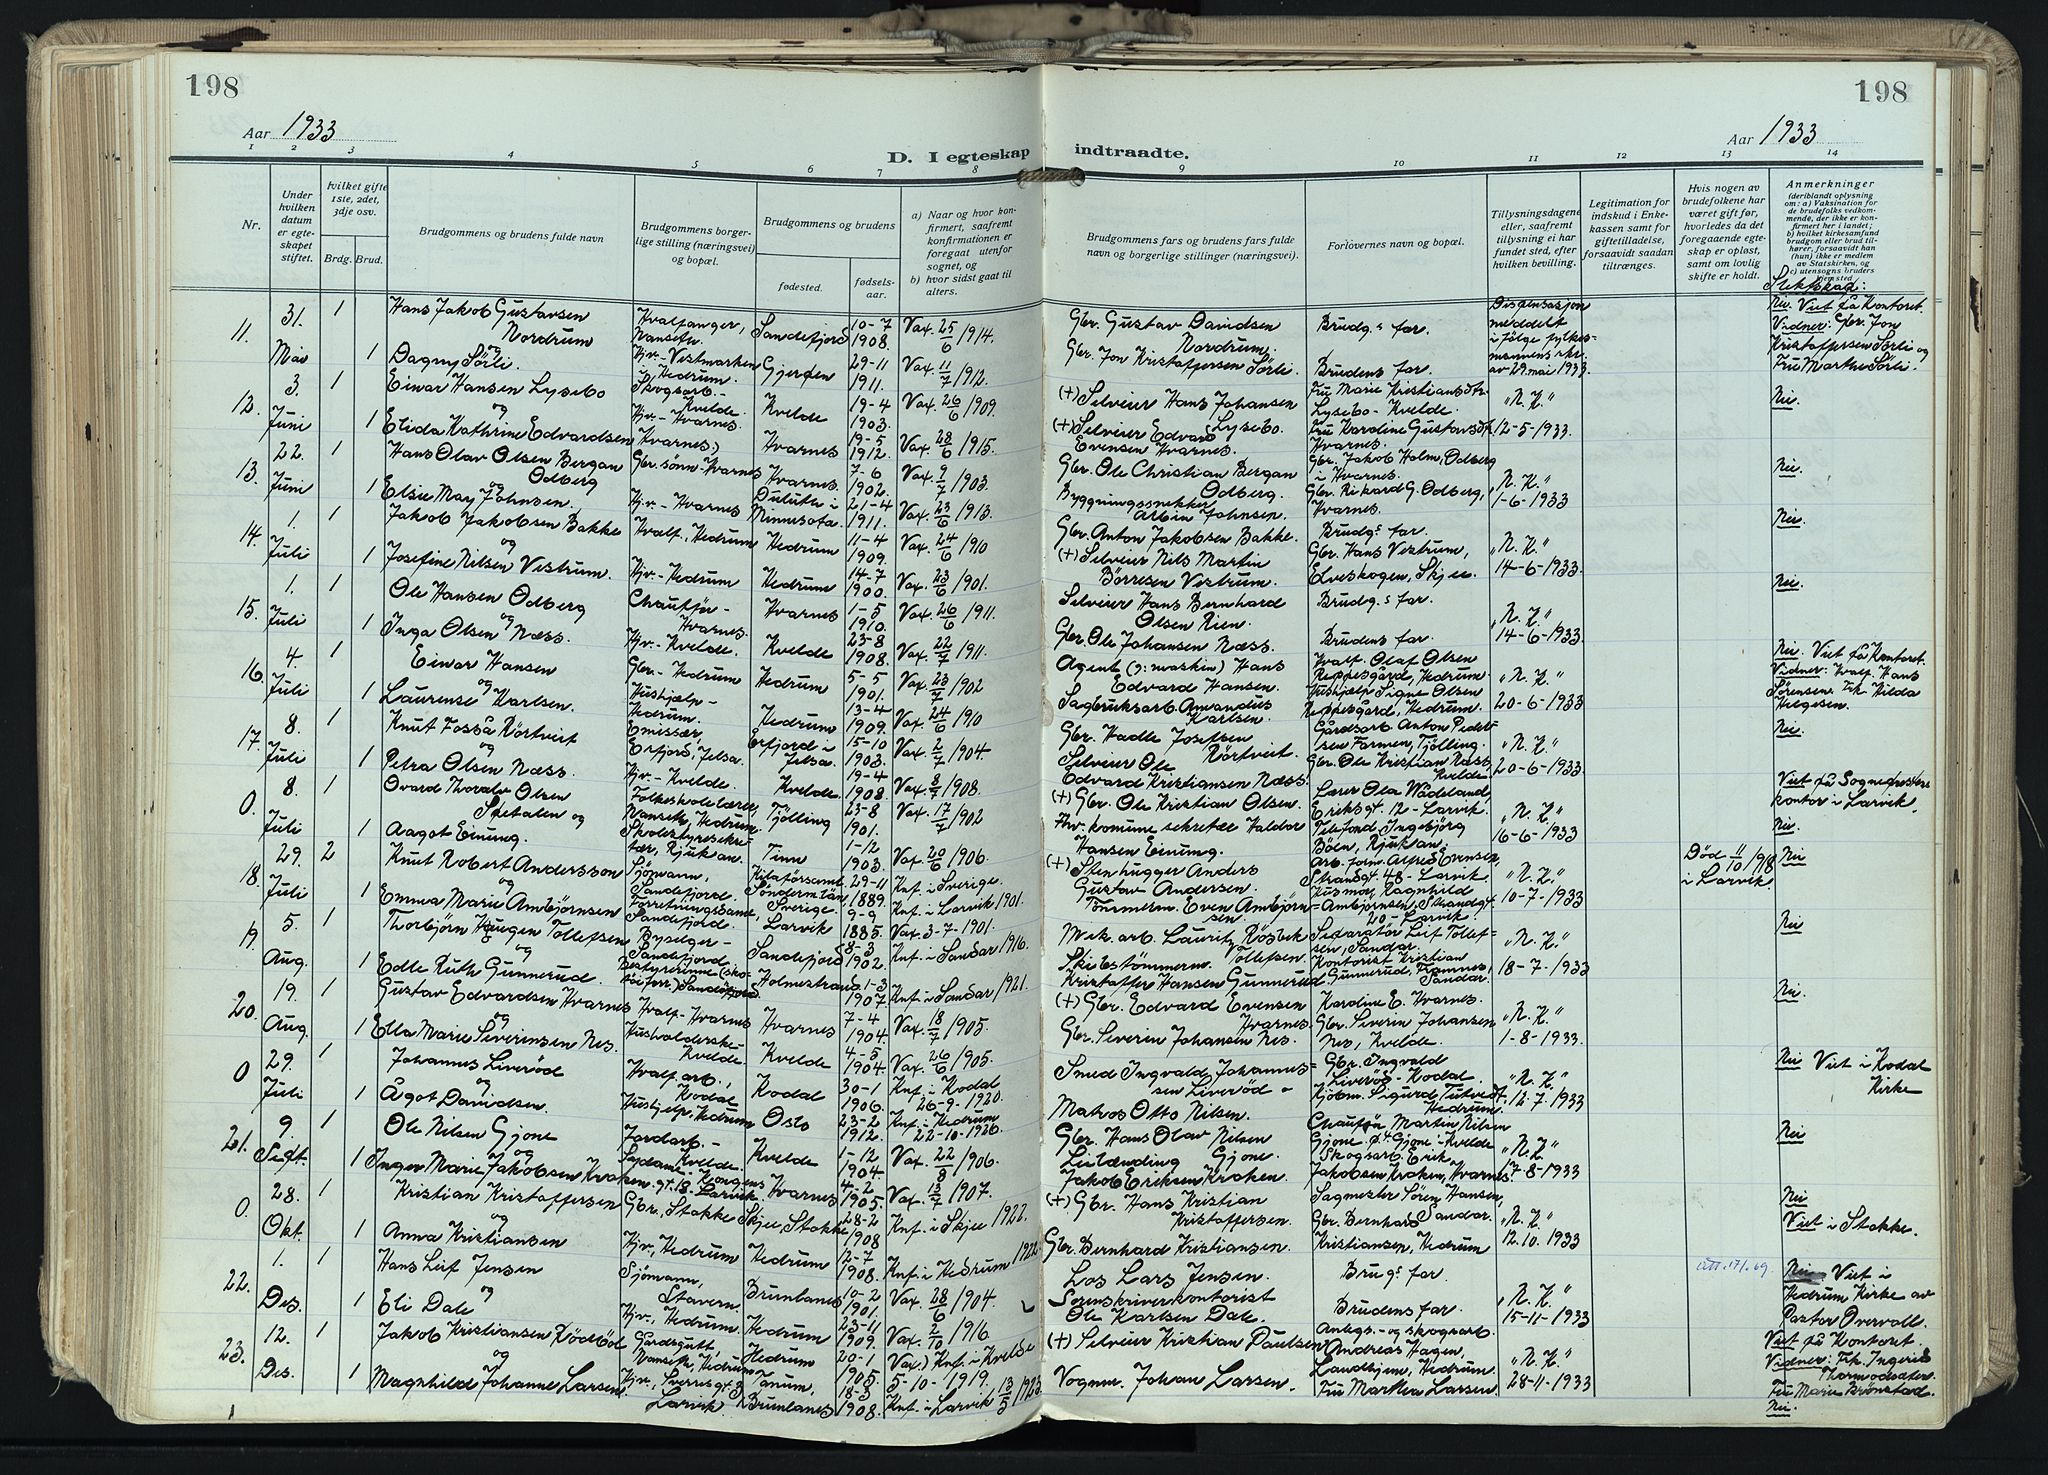 198
198
Aar 1933
Aar 1933
D. I egteskap indtraadte.
1 2 3 4 5 6 7 8 9 10 11 12 13 14
Nr.
Under hvilken datum er egteskapet stiftet.
hvilket gifte 1ste, 2det, 3dje osv.
Brdg. Brud.
Brudgommens og brudens fulde navn
Brudgommens borgerlige stilling (næringsvei) og bopæl.
Brudgommens og brudens
fødested.
fødselsaar.
a) Naar og hvor konfirmert, saafremt konfirmationen er foregaat utenfor sognet, og
b) hvor sidst gaat til alters.
Brudgommens fars og brudens fars fulde navn og borgerlige stillinger (næringsvei).
Forlovernes navn og bopæl.
Tillysningsdagene eller, saafremt tillysning ei har fundet sted, efter hvilken bevilling.
Legitimation for indskud i Enkekassen samt for giftetilladelse, forsaavidt saadan tiltrænges.
Hvis nogen av brudefolkene har været gift før, hvorledes da det foregaaende egteskap er opløst, samt om lovlig skifte er holdt.
Anmerkninger
(deriblandt oplysning om: a) Vaksination for de brudefolks vedkommende, der ikke er konfirmert her i landet;
b) hvilket kirkesamfund brudgom eller brud tilhører, forsaavidt han (hun) ikke er medlem av Statskirken, og
c) utensogns bruders hjemsted
Slektskap:
11. 31. Mai 1 Hans Jakob Gustavsen Nordrum Hvalfanger, Nansetv. Sandefjord 10-7 1908. Vax. 25/6 1914. Gbr. Gustav Davidsen Nordrum. Brudg.s far. Dispensasjon meddelt i følge fylkesmannens skr. av 29. mai 1933. Nei. Viet på Kontoret. Vidner: Gbr. Jon Kristoffersen Sørli og Fru Marthe Sørli.
og 1 Dagny Sörli. Hjv.-Vestmarken i Hedrum. Gjerpen 29-11 1911. Vax. 11/7 1912. Gbr. Jon Kristoffersen Sørli. Brudens far.
12. 3. Juni 1 Einar Hansen Lysebo Skogsarb.- Kvelde. Kvelde 19-4 1903. Vax. 26/6 1909. (+) Selveier Hans Johansen Lysebo. Fru Marie Kristiansdtr. Lysebo-Kvelde. "N. K." 12-5-1933. Nei.
og 1 Elida Kathrine Edvardsen Hjv.-Hvarnes. Hvarnes 19-5 1912. Vax. 28/6 1915. (+) Selveier Edvard Evensen Hvarnes. Fru Karoline Gustavsdtr. Hvarnes.
13. 22. Juni 1 Hans Olav Olsen Bergan Odberg Gbr. sønn-Hvarnes Hvarnes. 7-6 1902. Vax. 9/7 1903. Gbr. Ole Christian Bergan Odberg. Gbr. Jakob Holm, Odberg i Hvarnes. "N. K." 1-6-1933 Nei.
og 1 Elsie May Johnsen. Hjv.-Hvarnes Duluth i Minnesota. 21-4 1911. Vax. 23/6 1913. Byggningssnekker Albin Johnsen. Gbr. Rikard G. Odberg, Hvarnes.
14. 1. Juli 1 Jakob Jakobsen Bakke Hvalf., Hedrum Hedrum 11-4 1909. Vax. 24/6 1910 Gbr. Anton Jakobsen Bakke. Brudg.s far. "N. K." 14-6-1933. Nei.
og 1 Josefine Nilsen Vestrum. Hjv.-Hedrum Hedrum 14-7 1900. Vax. 23/6 1901. (+) Selveier Nils Martin Børresen Vestrum. Gbr. Hans Vestrum, Elveskogen, Skjee.
15. 1. Juli 1 Ole Hansen Odberg Chauffør-Hvarnes. Hvarnes 1-5 1910. Vax. 26/6 1911. Selveier Hans Bernhard Olsen Rien. Brudg.s far. "N. K." 14-6-1933. Nei.
og 1 Inga Olsen Næss. Hjv.-Kvelde. Kvelde 23-8 1908. Vax. 22/7 1911. Gbr. Ole Johansen Næss. Brudens far.
16. 4. Juli 1 Einar Hansen Gbr.-Hedrum Hedrum 5-5 1901. Vax. 23/7 1902 Agent (i maskin) Hans Edvard Hansen. Hvalf. Olaf Olsen Reppesgård, Hedrum "N. K." 20-6-1933 Nei. Viet på Kontoret. Vidner: Hvalf. Hans Sørensen. Frk. Hilda Helgesen.
og 1 Laurense Karlsen. Hushjelp-Hedrum. Hedrum 13-4 1909. Vax. 24/6 1910 Sagbruksarb. Amandus Karlsen. Hushjelp Signe Olsen Reppesgård, Hedrum.
17. 8. Juli 1 Knut Fosså Rörtveit Emissær, Erfjord, Jelsa. Erfjord i Jelsa. 15-10 1903. Vax. 2/7 1904. Gbr. Hadle Josefsen Rörtveit. Gårdsarb. Anton Pedersen Farmen, Tjölling. "N. K." 20-6-1933. Nei.
og 1 Petra Olsen Næss. Hjv.-Kvelde. Kvelde 19-4 1908. Vax. 8/7 1908. Selveier Ole Edvard Kristiansen Næss. Gbr. Ole Kristian Næss Kvelde
0. 8. Juli 1 Ovard Thoralv Olsen Spetalen og Folkeskolelærer, Nansetv., Hedrum. Tjölling 23-8 1901. Vax. 17/7 1902 (+) Gbr. Ole Kristian Olsen. Lærer Ola Wådeland, Eriksgt. 12-Larvik. "N. K." 16-6-1933 Viet på Sogneprestens kontor i Larvik.
1 Aagot Einung. Skolestyresekretær, Rjukan. Tinn 1-12 1903. Vax. 20/6 1906. Hrv. komune sekretær Haldor Hansen Einung. Telefond. Ingebjörg Böen, Rjukan. Nei.
18. 29. Juli 2 Knut Robert Andersson Sjömann, Sandefjord. Söndermtän, Sverige. 29-11 1889. Knf. i Sverige. (+) Stenhugger Anders Gustav Andersen. Arb. form. Alfred Evensen, Strandgt. 48-Larvik "N. K." 10-7-1933 Död 11/10 1918 i Larvik Nei
og 1 Emma Marie Ambjørnsen Forretningsdame, Sandefjord. Larvik 9-9 1885. Knf. i Larvik 1901. Vax. 3-7-1901. Tømmerm. Even Ambjørnsen. Husmor Ragnhild Ambjörnsen, Strandgt. 20-Larvik.
19. 5. Aug. 1 Thorbjörn Haugen Tollefsen Byselger-Sandefjord. Sandefjord 8-3 1902. Knf. i Sandar 1916. Mek. arb. Lauritz Rösbek Tollefsen. Separatør Leif Tollefsen, Sandar. "N. K." 18-7-1933 Nei
og 1 Edle Ruth Gunnerud. Bestyrerinne (skotöiforr.) Sandefjord Holmestrand 1-3 1907. Knf. i Sandar 1921. Skibstömmerm. Kristoffer Hansen Gunnerud Kontorist Kristian Gunnerud, Framnes, Sandar.
20. 19. Aug. 1 Gustav Edvardsen Hvarnes Hvalf-Hvarnes Hvarnes 7-4 1904. Vax. 18/7 1905. (+) Gbr. Edvard Evensen Hvarnes. Karoline E. Hvarnes. "N. K." 1-8-1933. Nei.
og 1 Ella Marie Severinsen Nes. Husholderske-Kvelde Kvelde 4-5 1904. Vax. 26/6 1905. Gbr. Severin Johansen Nes. Gbr. Severin Johansen Nes, Kvelde.
0 29. Juli 1 Johannes Liveröd Hvalfarb., Kodal Kodal 30-1 1906. Knf. i Kodal 26-9-1920. Smed Ingvald Johannessen Liveröd - Gbr. Ingvald Liveröd-Kodal "N. K." 12-7-1933 Nei Viet i Kodal Kirke
og 1 Ågot Davidsen. Hushjelp, Hedrum Oslo 23-2 1912. Knf. i Hedrum 22-10-1926. Matros Otto Nilsen. Kjøbm. Sigurd Tutvedt, Hedrum.
21. 9. Sept. 1 Ole Nilsen Gjone Jordarb.-Kvelde. Kvelde 1-12 1904. Vax. 22/8 1906. Gbr. Hans Olav Nilsen Gjone. Chauffør Martin Nilsen Gjone. "N. K." 17-8-1933 Nei
og 1 Inger Marie Jakobsen Kraken. Sydame-Kongensgt. 18. Larvik. Hvarnes 4-2 1905. Vax. 13/7 1907. Leilænding Jakob Eriksen Kraken Skogsarb. Erik Jakobsen Kraken, Hvarnes.
0. 28. Okt. 1 Kristian Kristoffersen Gbr., Stokke Skjee, Stokke 28-2 1908 Knf. i Skjee 1922. (+) Gbr. Hans Kristian Kristoffersen. Sagmester Sören Hansen, Sandar. "N. K." 12.10.1933 Nei Viet i Stokke.
og 1 Anna Kristiansen Hjv., Hedrum Hedrum 12-7 1908. Knf. i Hedrum 1922. Gbr. Bernhard Kristiansen. Gbr. Bernhard Kristiansen, Hedrum
22. 1. Des. 1 Hans Leif Jensen Sjömann, Stavern. Brunlanes 10-2 1901. Vax. 28/6 1904. Los Lars Jensen. Brudg.s far "N. K." 15-11-1933 Nei Viet i Hedrum Kirke av Pastor Overvoll.
og 1 Eli Dale Hjv., Hedrum. Hedrum 23-11 1909. Vax. 2/10 1916 Sorenskriverkontorist Ole Karlsen Dale. Brudens far.
23. 12. Des. 1 Jakob Kristiansen Rödböl Gårdsgutt, Nansetv., Hedrum Hedrum 20-1 1905. Vax.) Knf. i Kvelde 5-10-1919. (+) Selveier Kristian Paulsen Anlegs.- og skogsarb. Andreas Hagen, Landhjem, Hedrum "N. K." 28-11-1933 Viet på Kontoret. Vidner: Frk. Ingerid Thormodsæter. Fru Marie Brønstad. Nei.
og 1 Magnhild Johanne Larsen Hjv., Larvik. Tanum, Brunlanes 18-3 1908. Knf. i Larvik 13/5 1923. Vognm. Johan Larsen. Fru Marthea Larsen